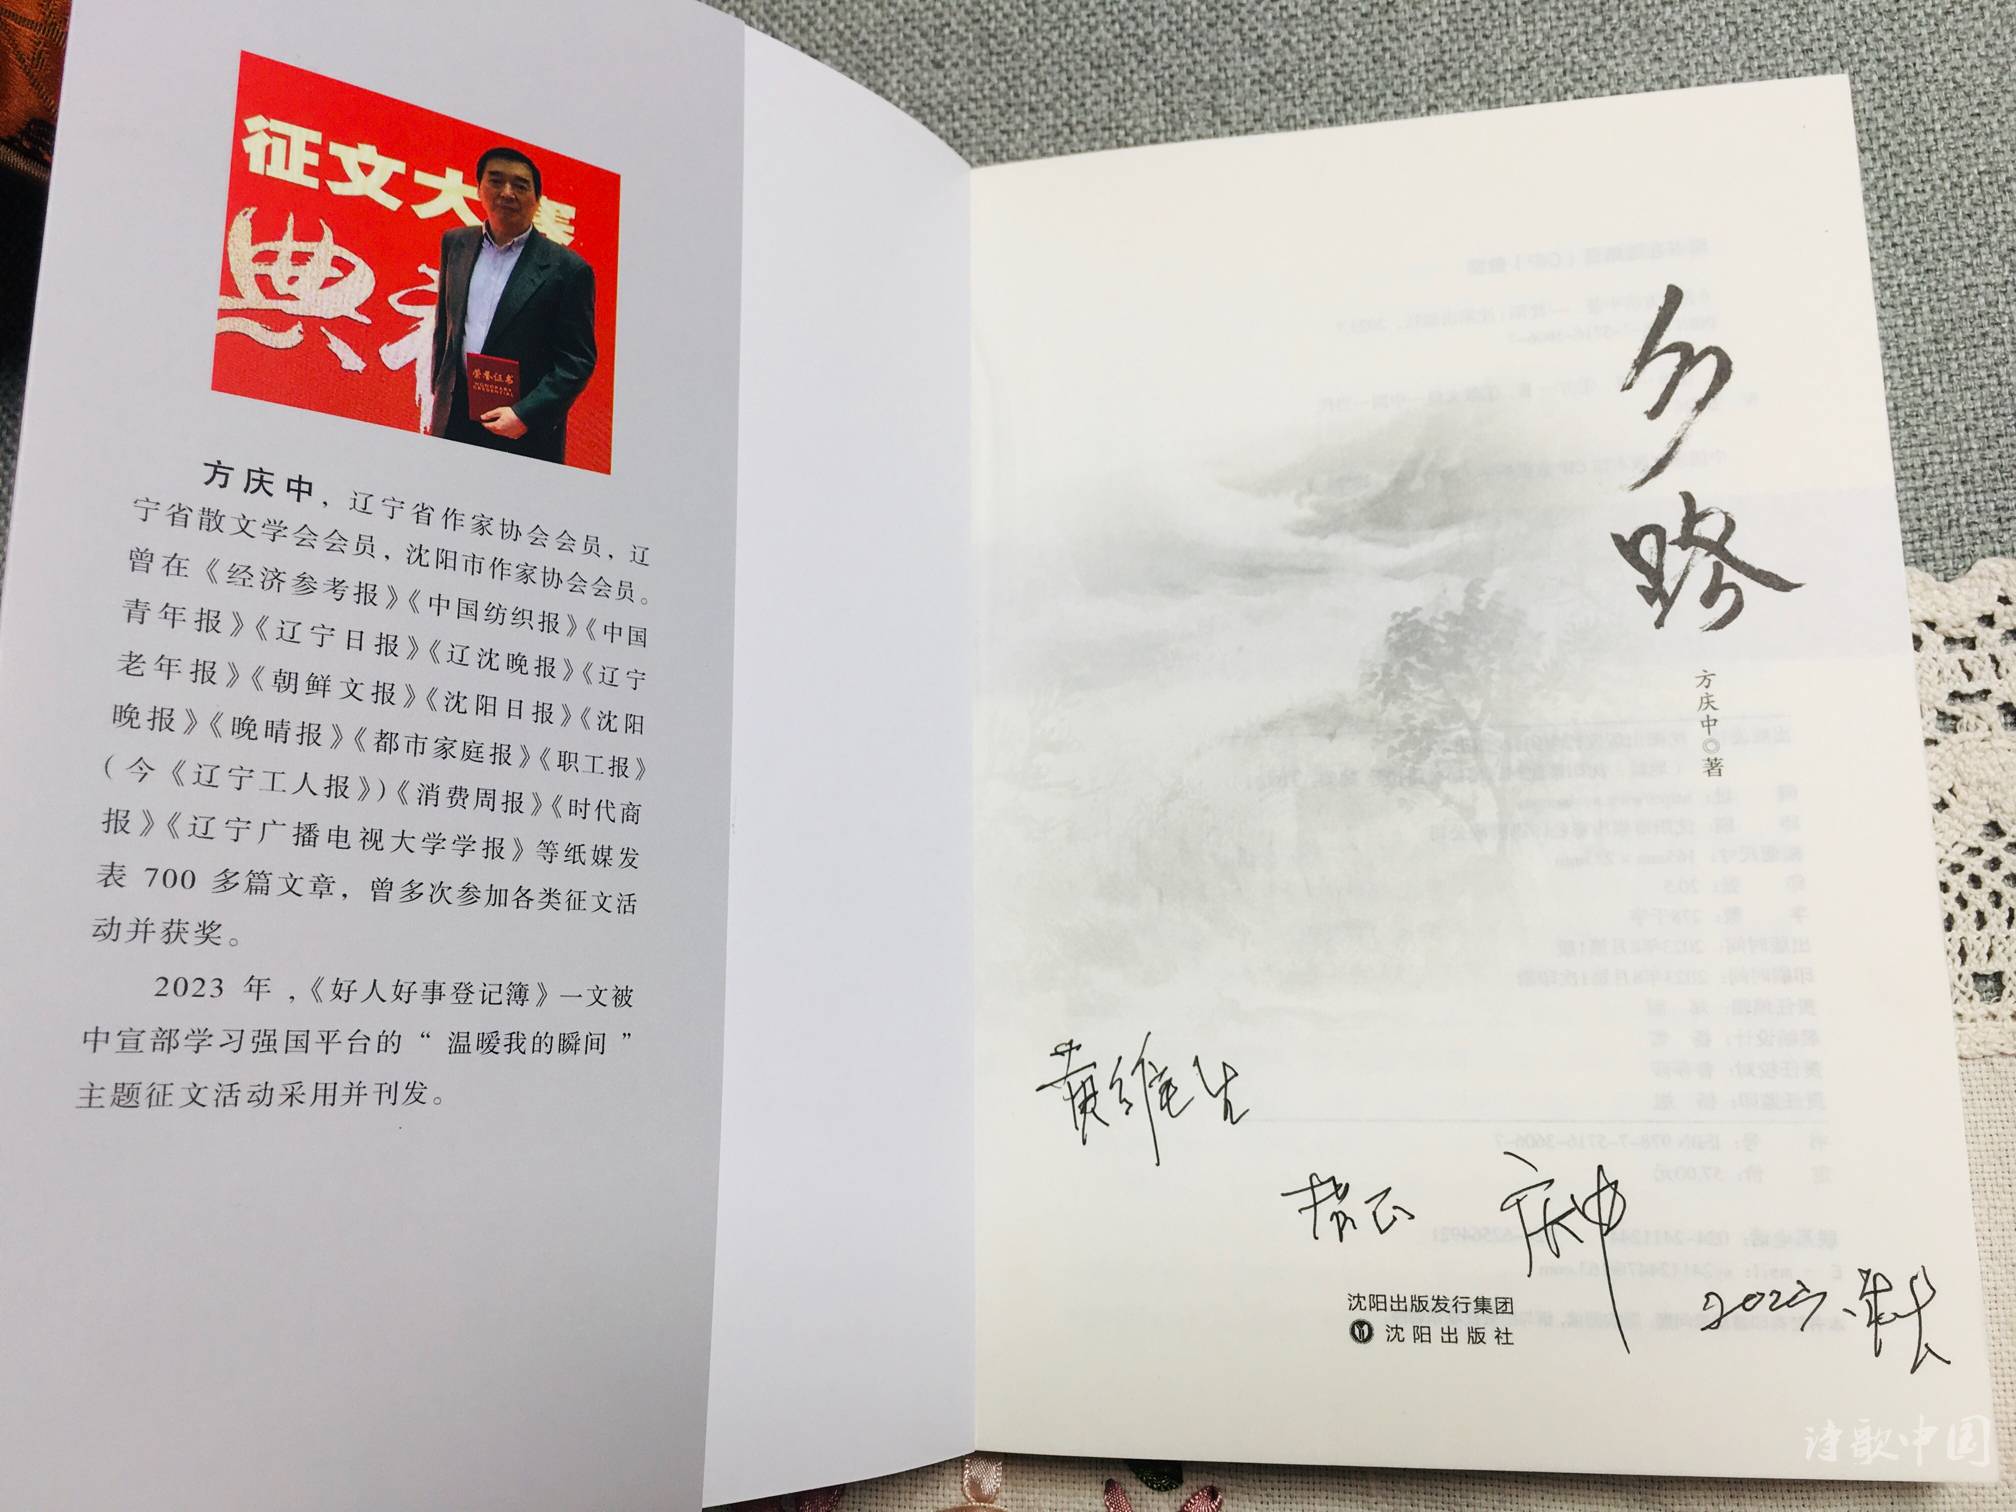 征文大赛
典礼
荣誉证书
方庆中，辽宁省作家协会会员，辽
宁省散文学会会员，沈阳市作家协会会员。
曾在《经济参考报》《中国纺织报》《中国
青年报》《辽宁日报》《辽沈晚报》《辽宁
老年报》《朝鲜文报》《沈阳日报》《沈阳
晚报》《晚晴报》《都市家庭报》《职工报》
(今《辽宁工人报》)《消费周报》《时代商
报》《辽宁广播电视大学学报》等纸媒发
表 700 多篇文章，曾多次参加各类征文活
动并获奖。
2023 年，《好人好事登记簿》一文被
中宣部学习强国平台的“温暖我的瞬间”
主题征文活动采用并刊发。
方庆中◎著
黄维生
指正
庆中
2023.
沈阳出版发行集团
沈阳出版社
诗歌中国